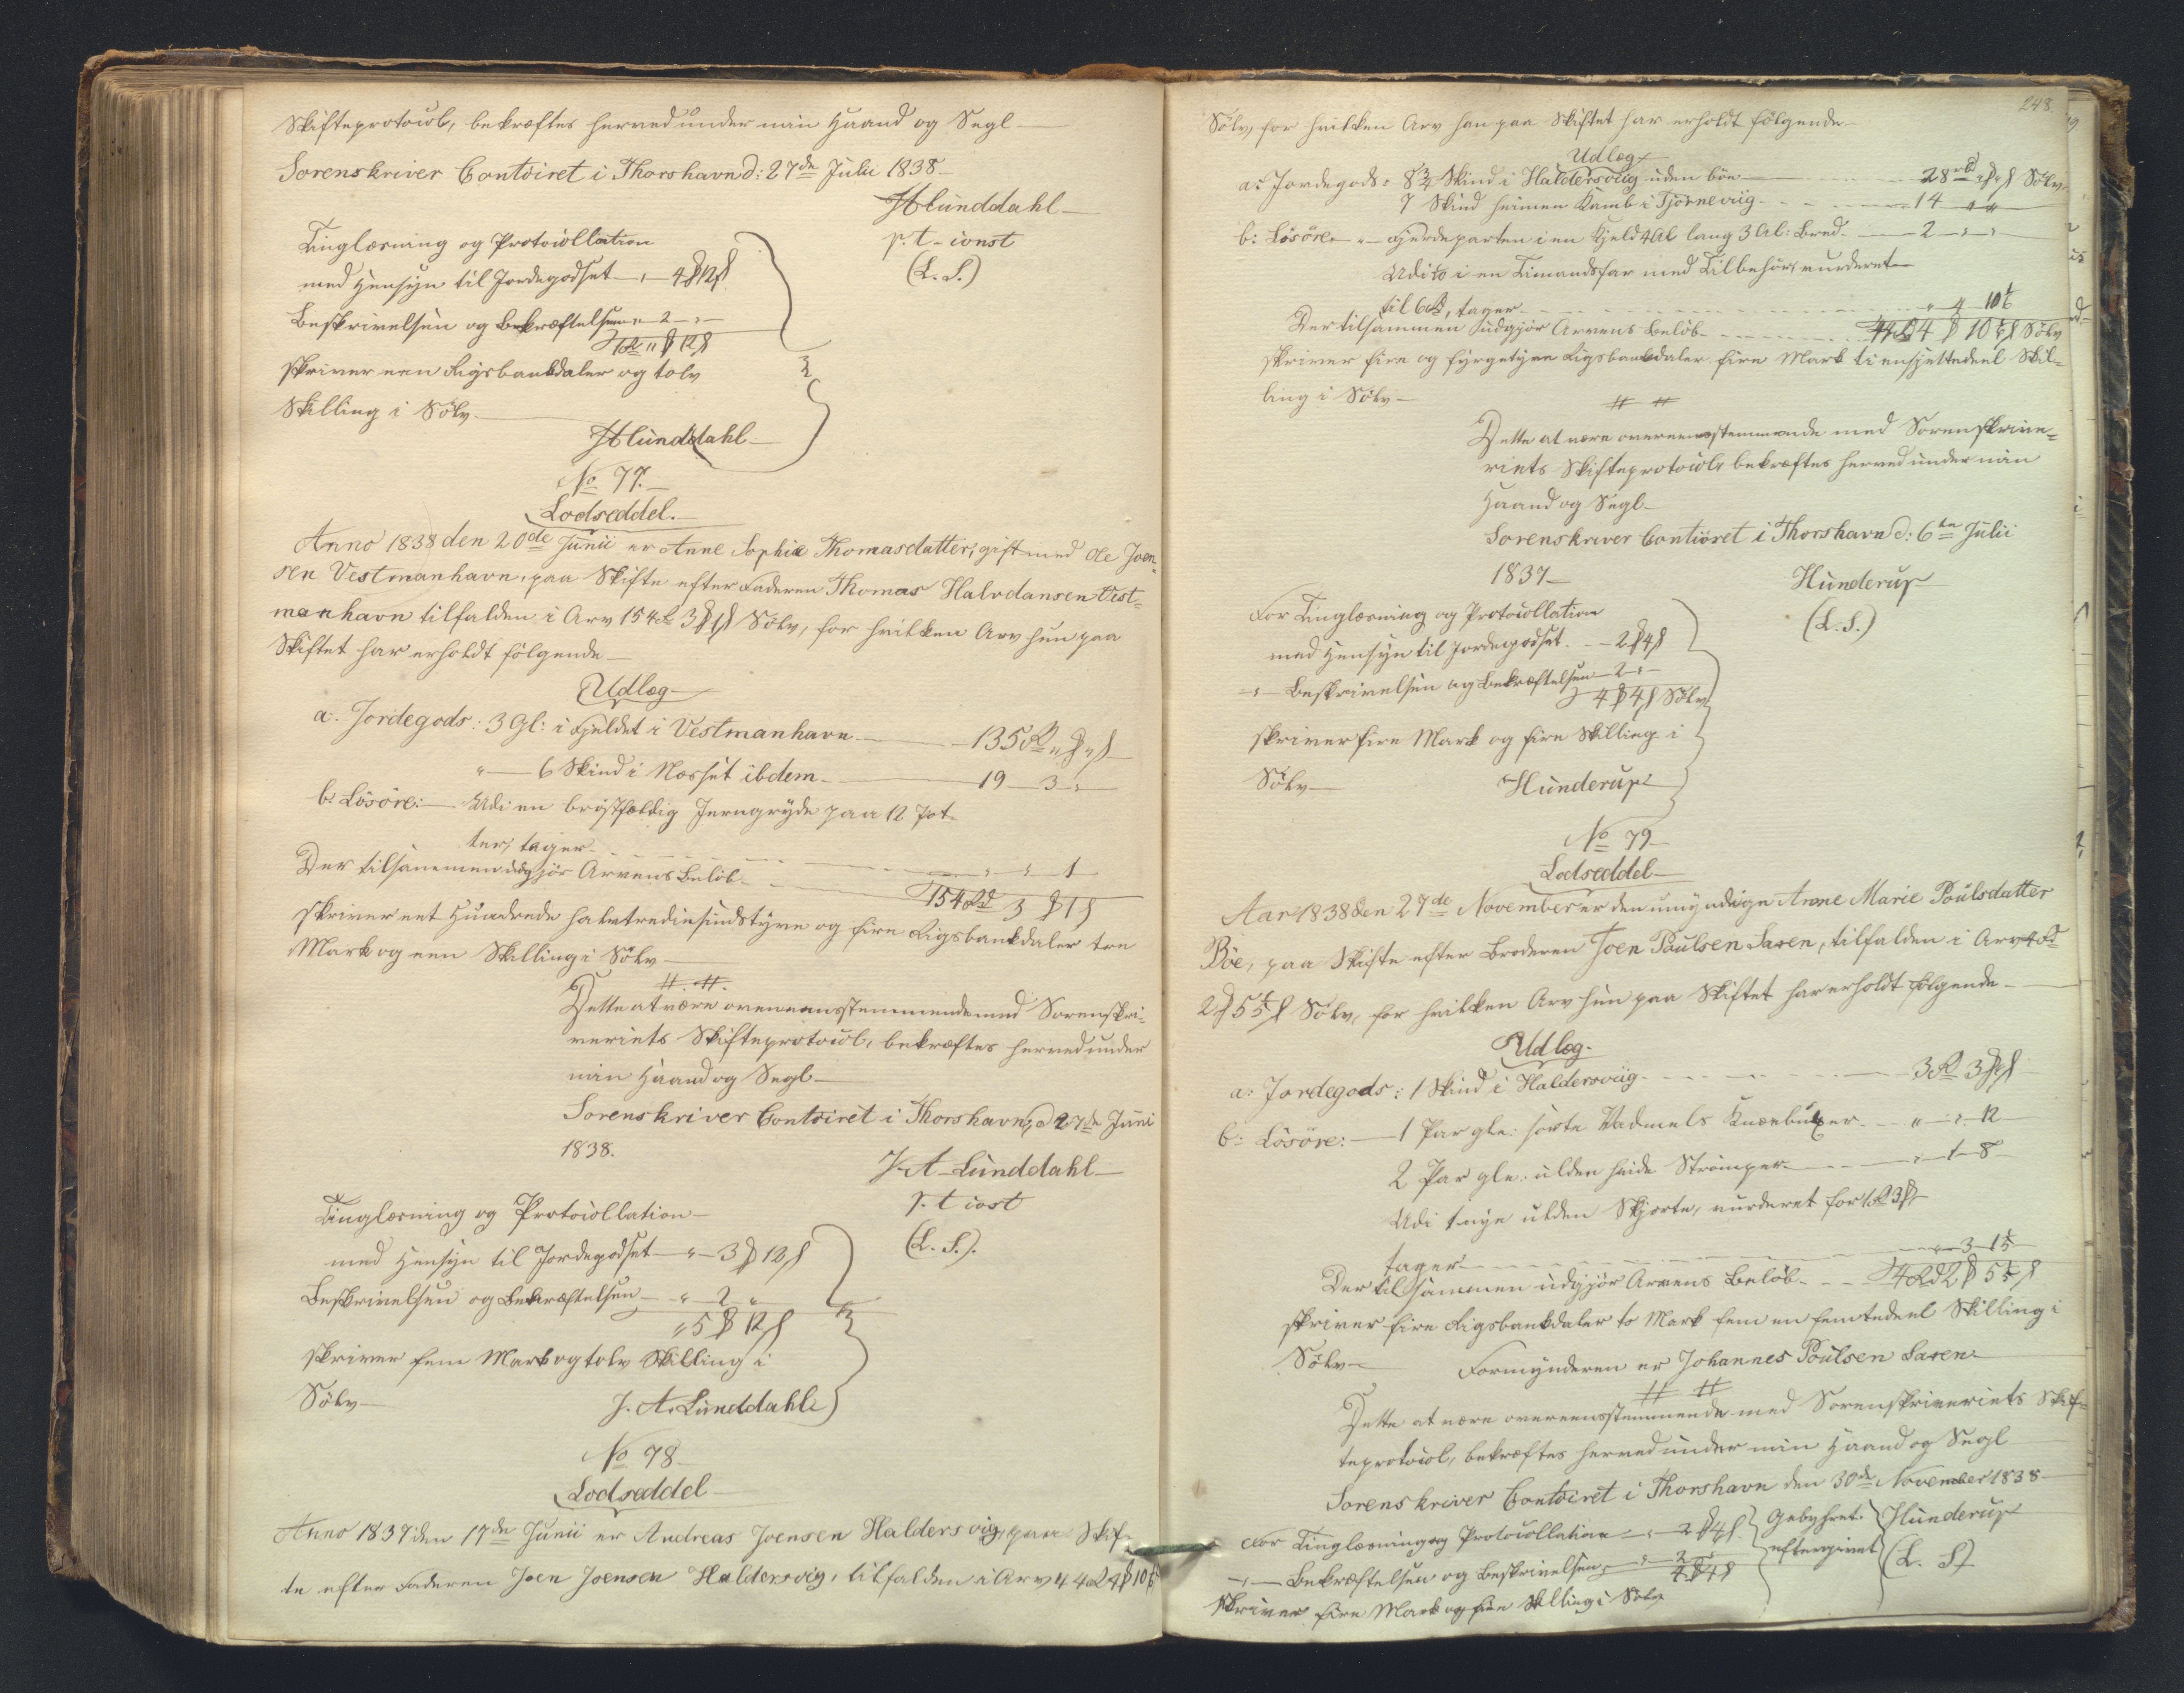 Skifteprotocol, bekræftes herved under min Haand og Segl
Sorenskriver Contoiret i Thorshavn d: 27de Julii 1838
H Lunddahl
p. t. const
(L. S.)
Tinglæsning og Protocollation
med Hensyn til Jordegodset 4 12
Beskrivelsen og Bekræftelsen 2
12
skriver een Rigsbankdaler og tolv
Skilling i Sölv
Lunddahl
No 77.
Lodseddel.
Anno 1838 den 20de Junii er Anne Sophie Thomasdatter, gift med Ole Joen-
sen Vestmanhavn, paa Skifte efter Faderen Thomas Halvdansen Vest-
manhavn tilfalden i Arv 154 3 1 Sölv, for hvilken Arv hun paa
Skiftet har erholdt fölgende
Udlæg
a. Jordegods: 3 Gl: i Fjeldet i Vestmanhavn 135
" 6 Skind i Næsset ibdem 19 3 "
b. Lösöre: Udi en bröstfældig Jerngryde paa 12 Pot-
ter, tager 1
Der tilsammen udgjör Arvens Belöb 154 Rd 3 1
skriver eet Hundrede halvtrediesindstyve og fire Rigsbankdaler tre
Mark og een Skilling i Sölv
Dette at være overeensstemmende med Sorenskri-
veriets Skifteprotocol, bekræftes herved under
min Haand og Segl
Sorenskriver Contoiret i Thorshavn, d 27de Juni
1838.
J. A. Lunddahl
p. t const
(L. S.).
Tinglæsning og Protocollation
med Hensyn til Jordegodset " 3 12
Beskrivelsen og Bekræftelsen " 2 "
" 5 12
skriver fem Mark og tolv Skilling i
Sölv
J. A. Lunddahl
No 78
Lodseddel
Anno 1837 den 17de Junii er Andreas Joensen Haldersvig, paa Skif-
te efter Faderen Joen Joensen Haldersvig, tilfalden i Arv 44 Rd 4 10 1/6
248.
Sölv, for hvilken Arv han paa Skiftet har erholdt fölgende
Udlæg
a: Jordegods: 8 3/4 Skind i Haldersviig uden böe 28 Sölv
7 Skind heimen Kamb i Tjörneviig 14 " "
b: Lösöre " Fjerdeparten i en Kjeld 4 Al lang 3 Al: Bred 2 " "
Udi to i en Timandsfar med Tilbehör, vurderet
til 6 , tager " 4 10 1/6
Der tilsammen udgjör Arvens Belöb 44 Rd 4 10 1/6 Sölv
skriver fire og fyrgetyve Rigsbankdaler fire Mark ti ensjettedeel Skil-
ling i Sölv
Dette at være overeensstemmende med Sorenskrive-
riets Skifteprotocol, bekræftes herved under min
Haand og Segl
Sorenskriver Contoiret i Thorshavn d: 6te Julii
1837
Hunderup
(L. S.)
For Tinglæsning og Protocollation
med Hensyn til Jordegodset 2 4
" Beskrivelsen og Bekræftelsen 2 "
4 4 Sölv
skriver fire Mark og fire Skilling i
Sölv
Hunderup
No 79
Lodseddel
Aar 1838 den 27de November er den umyndige Anne Marie Poulsdatter
Böe, paa Skifte efter Broderen Joen Poulsen Saxen, tilfalden i Arv 4 Rd
2 5 1/5 Sölv, for hvilken Arv hun paa Skiftet har erholdt fölgende
Udlæg
a: Jordegods: 1 Skind i Haldersviig 3 3
b: Lösöre: 1 Par gle: sorte Vadmels Knæbuxer " " 12
2 Par gle: ulden hvide Strömper " 1 8
Udi 1 nye ulden Skjorte, vurderet for 1 3
tager " 3 1 1/5
Der tilsammen udgjör Arvens Belöb 4 Rd 2 5 1/5
skriver fire Rigsbankdaler to Mark fem en femtedeel Skilling i
Sölv Formynderen er Johannes Poulsen Saxen
Dette at være overeensstemmende med Sorenskriveriets Skif-
teprotocol, bekræftes herved under min Haand og Segl
Sorenskriver Contoiret i Thorshavn den 30de November 1838
For Tinglæsning og Protocollation " 2 4 Gebyhret Hunderup
" Bekræftelsen og Beskrivelsen " 2 eftergivet (L. S.)
4 4
skriver fire Mark og fire Skilling i Sölv